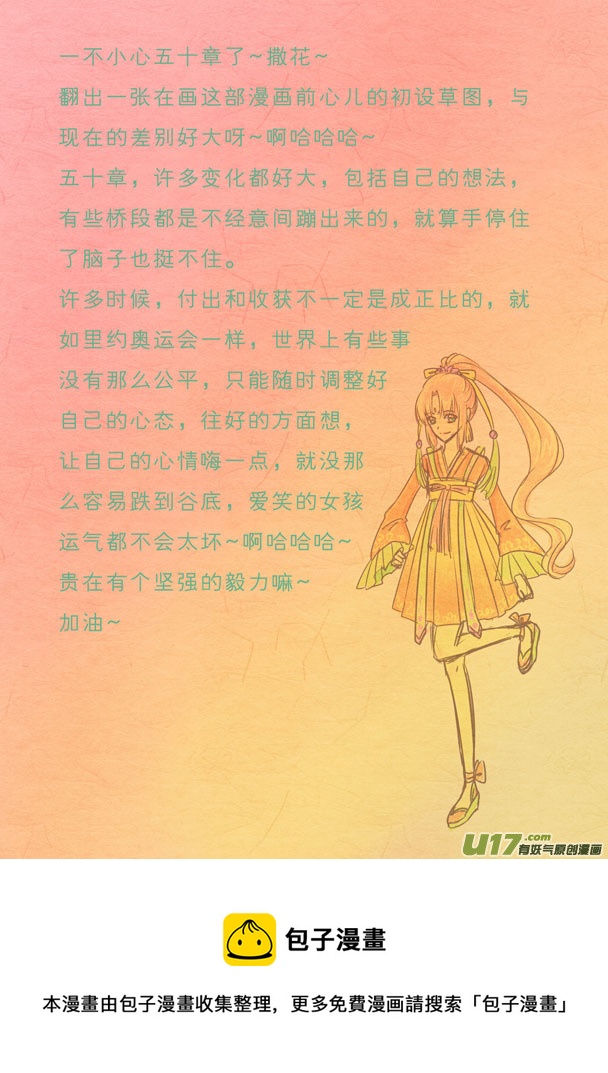 一不小心五十章了~撒花~
翻出一张在画这部漫画前心儿的初设草图，与
现在的差别好大呀~啊哈哈哈~
五十章，许多变化都好大，包括自己的想法，
有些桥段都是不经意间蹦出来的，就算手停住
了脑子也挺不住。
许多时候，付出和收获不一定是成正比的，就
如里约奥运会一样，世界上有些事
没有那么公平，只能随时调整好
自己的心态，往好的方面想，
让自己的心情嗨一点，就没那
么容易跌到谷底，爱笑的女孩
运气都不会太坏~啊哈哈哈~
贵在有个坚强的毅力嘛~
加油~
U17.com
有妖气原创漫画
包子漫畫
本漫畫由包子漫畫收集整理，更多免費漫画請搜索「包子漫畫」